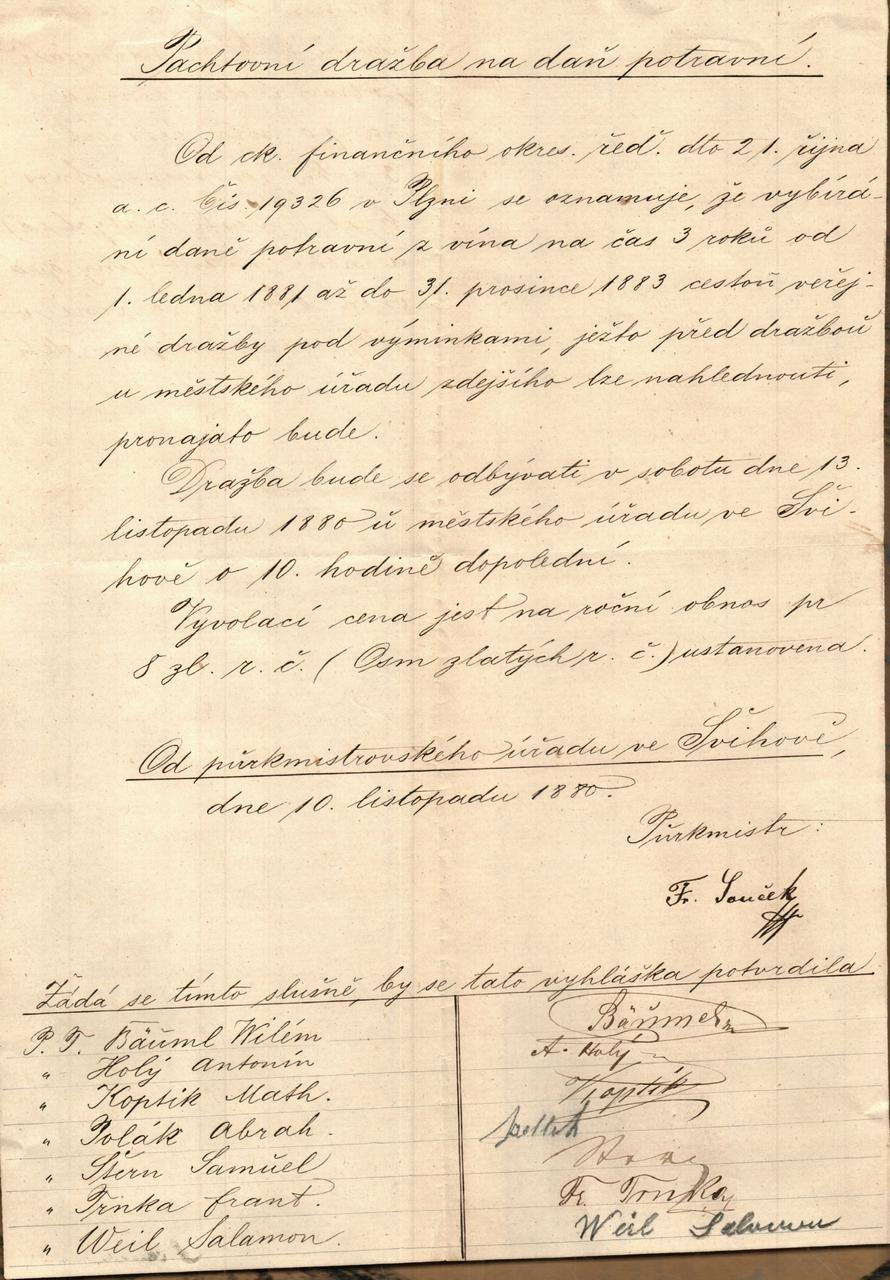 Pachtovní dražba na daň potravní.
Od ck. finančního okres. řed. dto 21. října
a. c. Čís. 19326 v Plzni se oznamuje, že vybírá-
ní daně potravní z vína na čas 3 roků od
1. ledna 1881 až do 31. prosince 1883 cestou veřej-
né dražby pod výminkami, ježto před dražbou
u městského úřadu zdejšího lze nahlednouti,
pronajato bude.
Dražba bude se odbývati v sobotu dne 13.
listopadu 1880 u městského úřadu ve Švi-
hově o 10. hodině dopolední.
Vyvolací cena jest na roční obnos pr
8 zl. r. č. (Osm zlatých r. č.) ustanovena.
Od purkmistrovského úřadu ve Švihově,
dne 10. listopadu 1880.
Purkmistr:
Fr. Souček
Žádá se tímto slušně, by se tato vyhláška potvrdila
P. T. Bäuml Wilém Bäuml
" Holý Antonín A. Holý
" Koptik Math. Koptik
" Polák Abrah.
" Stern Samuel Stern
" Trnka Frant. Fr. Trnka
" Weil Salamon. Weil Salomon